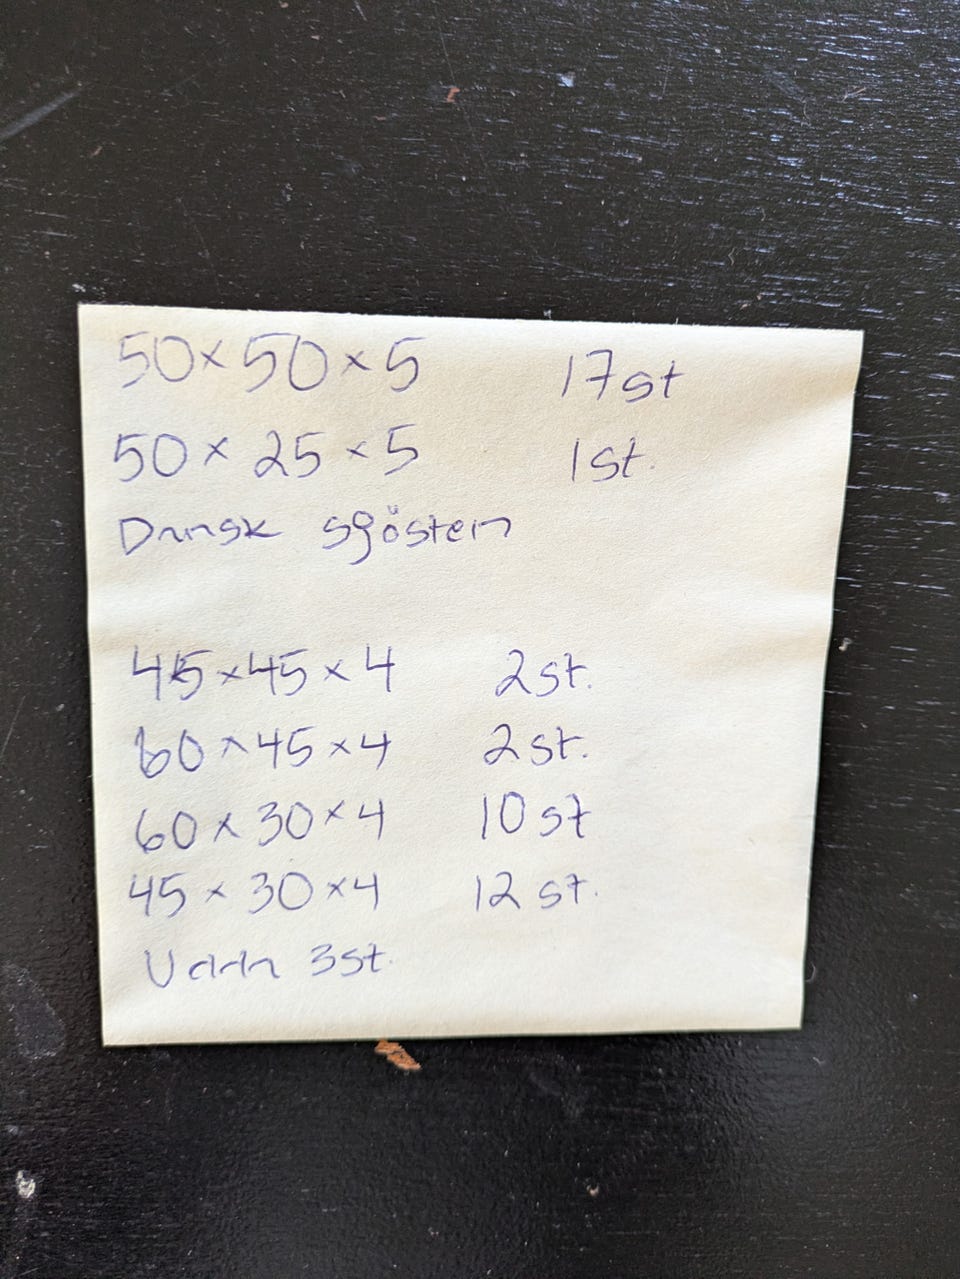 50×50×5 17st
50×25×5 1st.
Dansk sjösten
45×45×4 2st.
60×45×4 2st.
60×30×4 10st
45×30×4 12st.
Udda 3st.